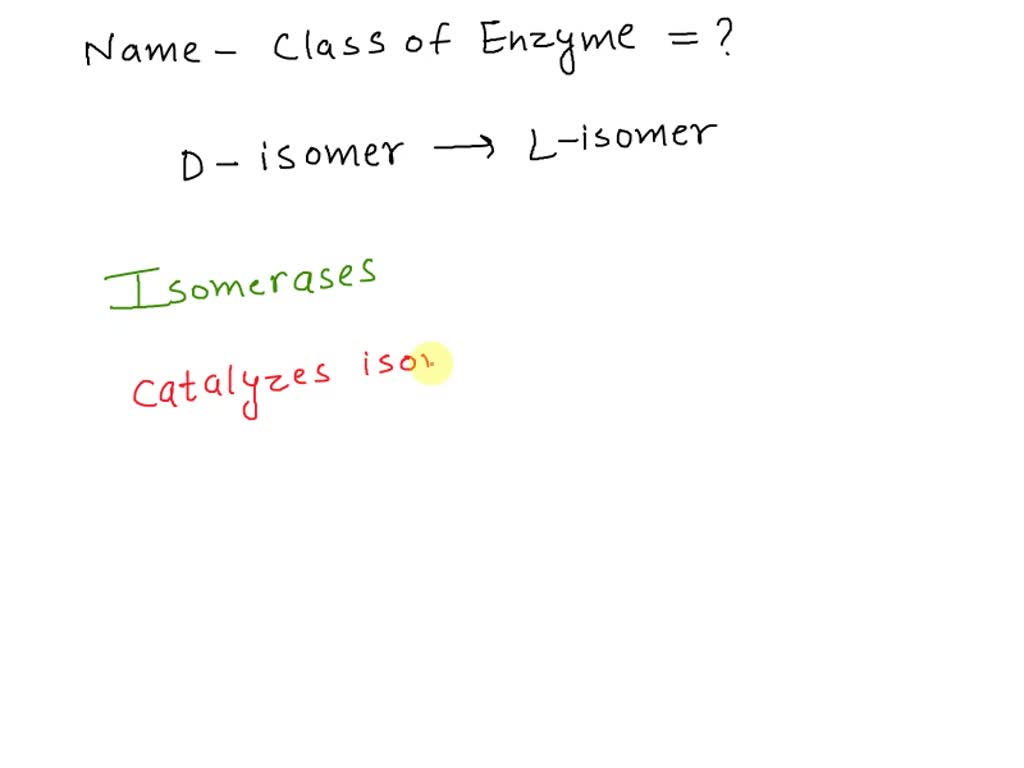 Name - Class of Enzyme = ?
D - isomer → L-isomer
Isomerases
Catalyzes